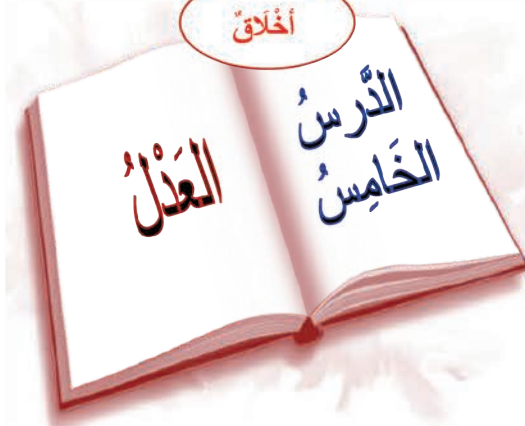 أَخْلَاقٌ
الدَّرسُ
الخَامِسُ
العَدْلُ